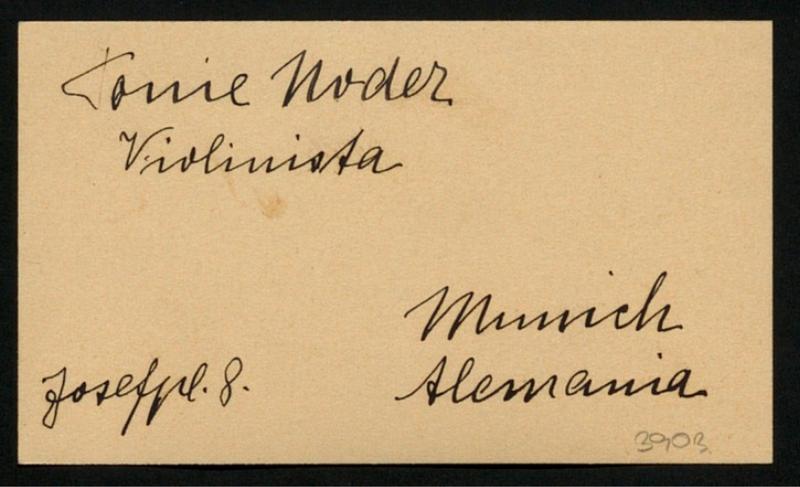 Tonie Noder
Violinista
Munich
Josefpl. 8.
Alemania
3903